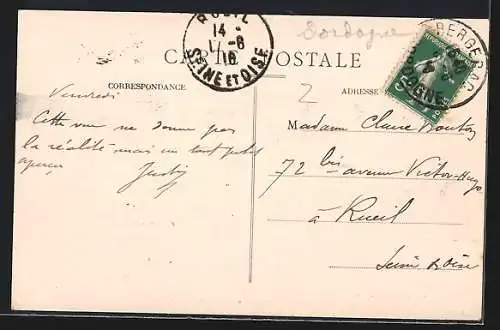 RUEIL
14
17-8
10
SEINE ET OISE
Dordogne
BERGERAC
DORDOGNE
CARTE POSTALE
CORRESPONDANCE
ADRESSE
2
Vendredi
Cette vue ne donne pas
la réalité mais un tout petit
aperçu
Madame Claire
72 bis avenue Victor-Hugo
à Rueil
Seine & Oise